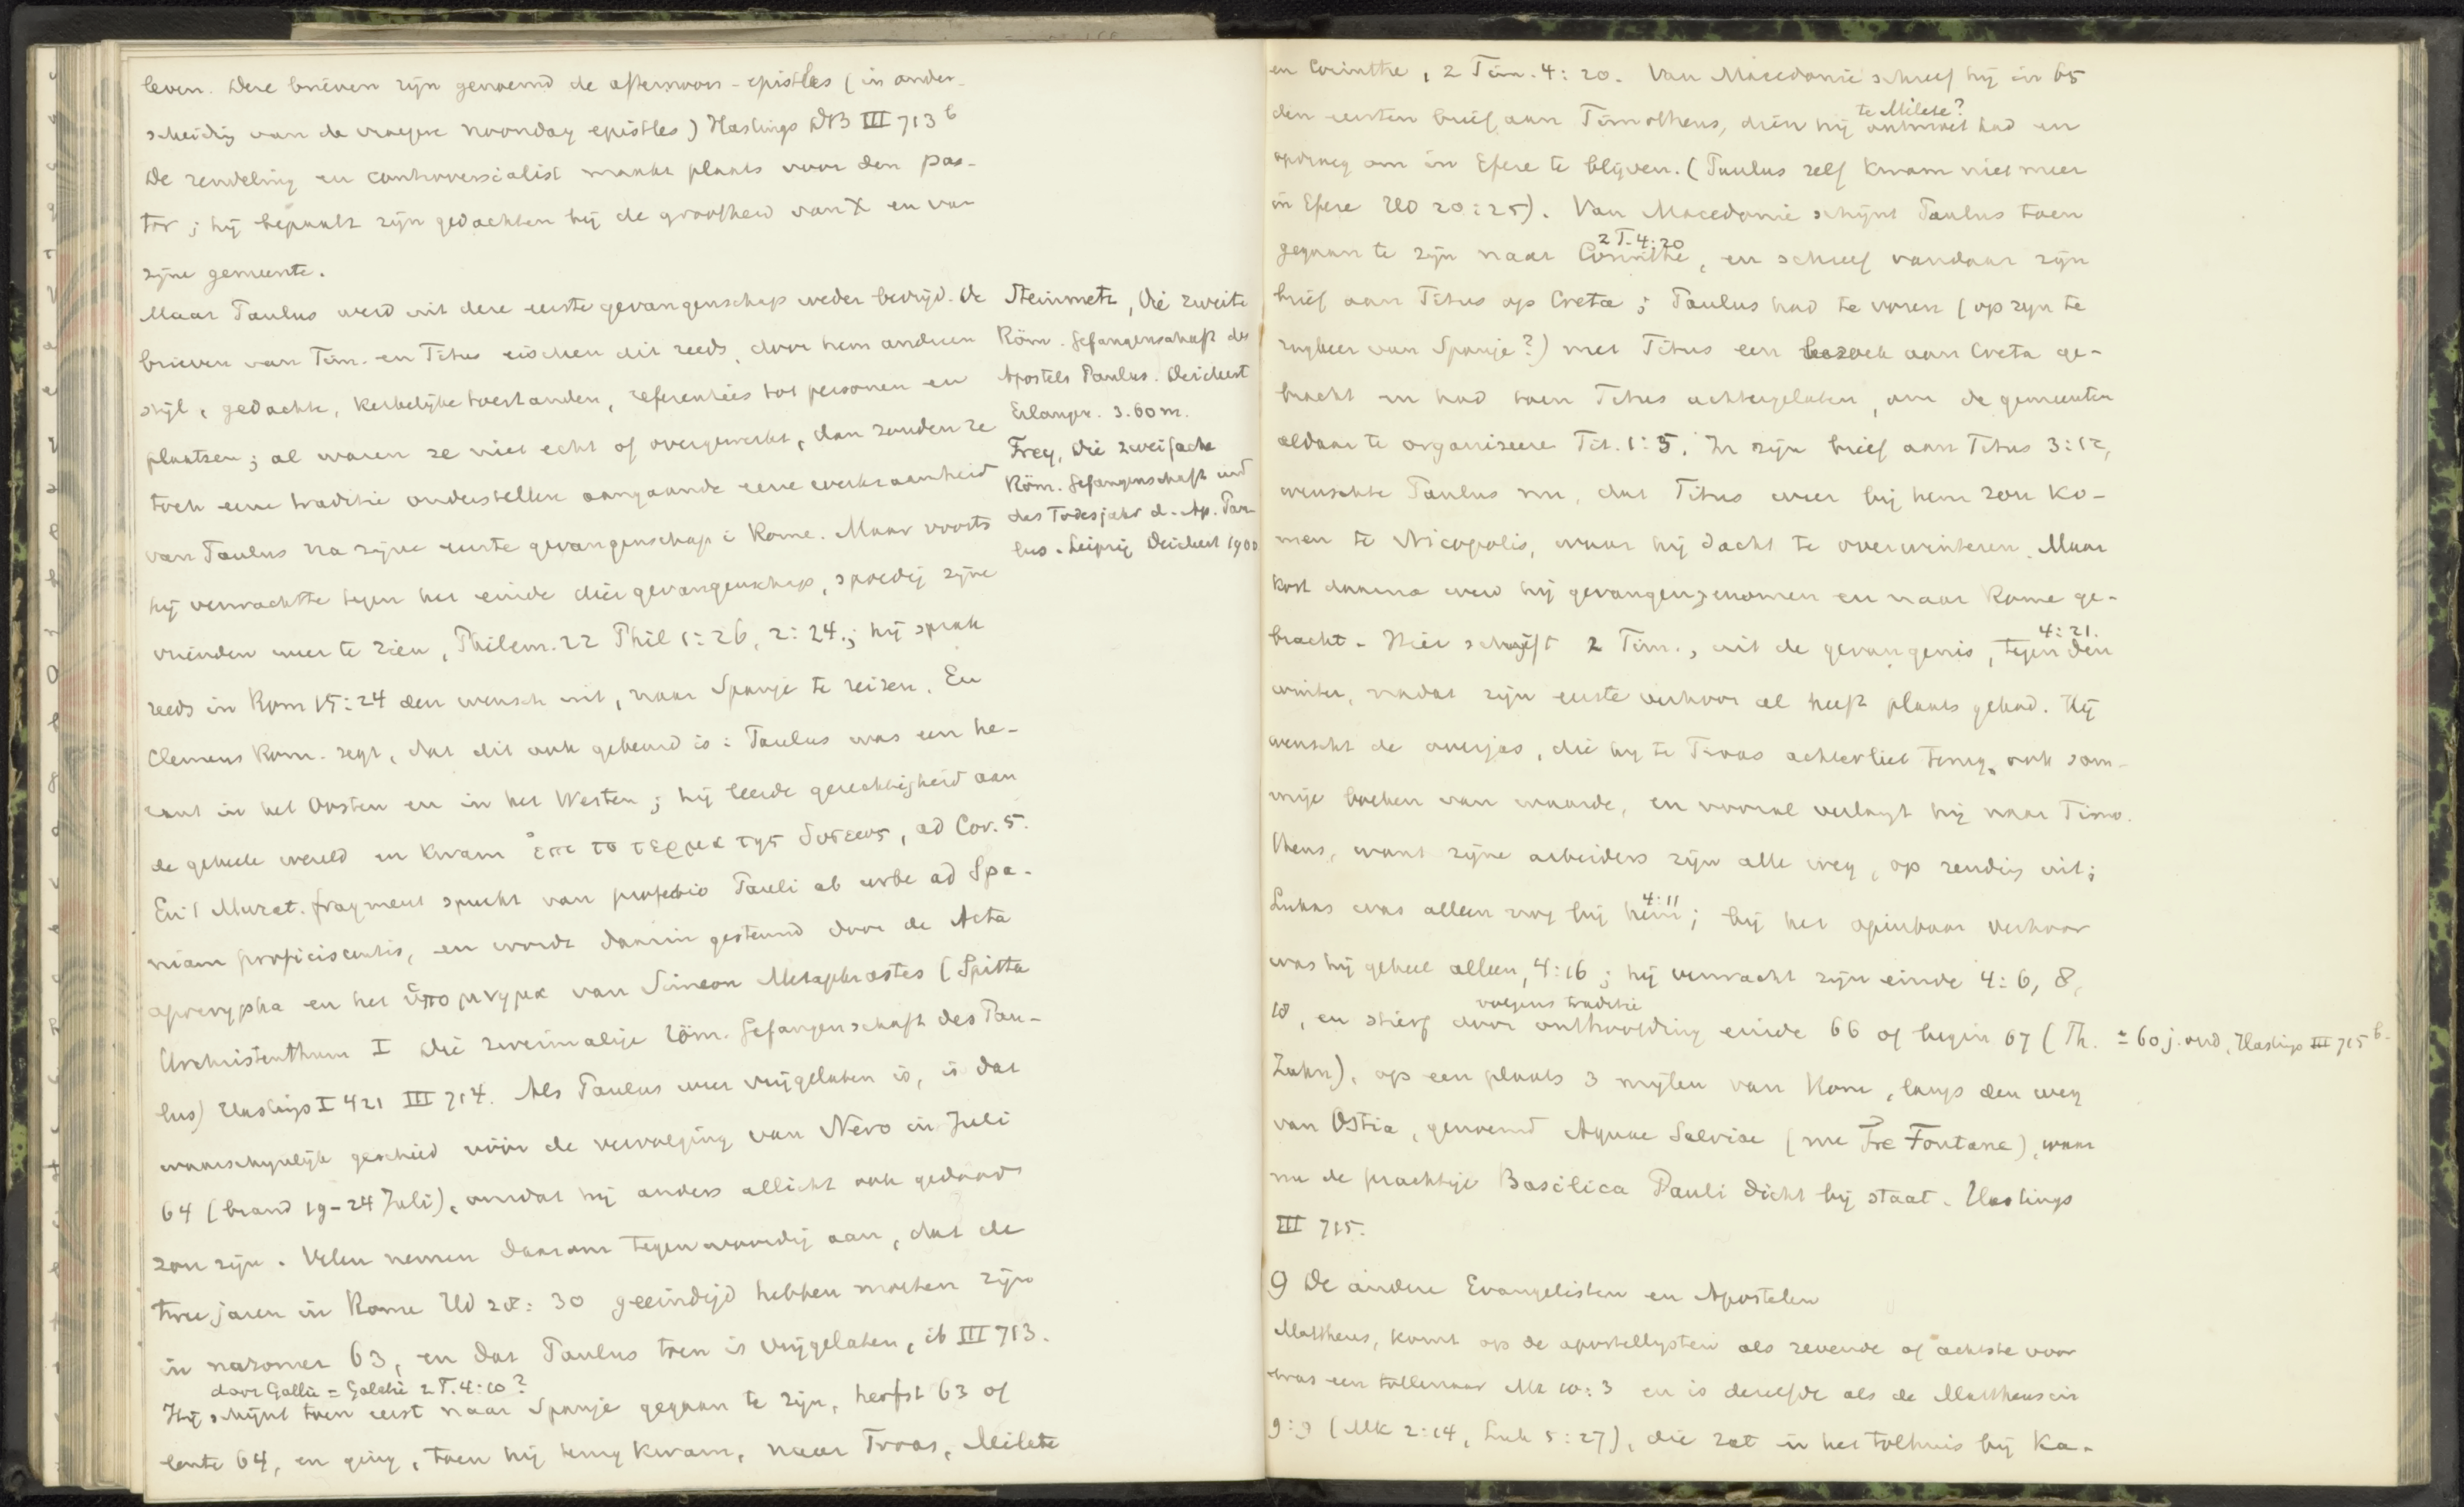 leven. Deze brieven zijn genoemd de afternoon-epistles (in onder-
scheidig van de vroegere noonday epistles) Hastings DB III 713 b
De zendeling en controversialist maakt plaats voor den pas-
tor; hij bepaalt zijn gedachten bij de grootheid van X en van
zijne gemeente.
Maar Paulus werd uit deze eerste gevangenschap weder bevrijd. De
brieven van Tim. en Titus eischen dit reeds, door hem anderen
stijl, gedachte, kerkelijke toestanden, referenties tot personen en
plaatsen; al waren ze niet echt of overgewerkt, dan zouden ze
toch eene traditie onderstellen aangaande eene werkzaamheid
van Paulus na zijne eerste gevangenschap i Rome. Maar voorts
hij verwachtte tegen het einde dier gevangenschap, spoedig zijne
vrienden weer te zien, Philem. 22 Phil 1:26, 2:24.; hij sprak
reeds in Rom 15:24 den wensch uit, naar Spanje te reizen. En
Clemens Rom. zegt, dat dit ook gebeurd is: Paulus was een he-
raut in het Oosten en in het Westen; hij leerde gerechtigheid aan
de geheele wereld en kwam ἐπι το τερμα της δυσεως, ad Cor. 5.
En 't Murat. fragment spreekt van profectio Pauli ab urbe ad Spa-
niam proficiscentis, en wordt daarin gesteund door de Acta
apocrypha en het ὑπομνημα van Simeon Metaphrastes (Spitta
Urchristenthum I Die zweimalige röm. Gefangenschaft des Pau-
lus) Hastings I 421 III 714. Als Paulus weer vrijgelaten is, is dat
waarschynlijk geschied vóór de vervolging van Nero in Juli
64 (brand 19-24 Juli), omdat hij anders allicht ook gedood
zou zijn. Velen nemen daarom tegenwoordig aan, dat de
twee jaren in Rome Hd 28:30 geeindigd hebben moeten zijn
in nazomer 63, en dat Paulus toen is vrijgelaten, ib III 713.
door Gallie = Galatie 2 T. 4:10?
Hij schijnt toen eerst naar Spanje gegaan te zijn, herfst 63 of
lente 64, en ging, toen hij terug kwam, naar Troas, Milete
Steinmetz, Die zweite
Röm. Gefangenschaft des
Apostels Paulus. Deichert
Erlangen. 3.60 m.
Frey, Die zweifache
Röm. Gefangenschaft und
das Todesjahr d. Ap. Pau-
lus. Leipzig Deichert 1900
en Corinthe, 2 Tim. 4:20. Van Macedonie schreef hij in 65
te Milete?
den eersten brief aan Timotheus, dien hij ontmoet had en
opdroeg om in Efeze te blijven. (Paulus zelf kwam niet meer
in Efeze Hd 20:25). Van Macedonie schijnt Paulus toen
2 T. 4:20
gegaan te zijn naar Corinthe, en schreef vandaar zijn
brief aan Titus op Creta; Paulus had te voren (op zyn te
rugkeer van Spanje?) met Titus een bezoek aan Creta ge-
bracht en had toen Titus achtergelaten, om de gemeenten
aldaar te organizeeren Tit. 1:5. In zijn brief aan Titus 3:12,
wenschte Paulus nu, dat Titus weer bij hem zou ko-
men te Nicopolis, waar hij dacht te overwinteren. Maar
kort daarna werd hij gevangengenomen en naar Rome ge-
4:21.
bracht. Hier schrijft 2 Tim., uit de gevangenis, tegen den
winter, nadat zijn eerste verhoor al heeft plaats gehad. Hij
wenscht de overjas, die hij te Troas achterliet terug, ook som-
mige boeken van waarde, en vooral verlangt hij naar Timo-
theus, want zijne arbeiders zijn alle weg, op zending uit;
4:11
Lukas was alleen nog bij hem; bij het openbaar verhoor
was hij geheel alleen, 4:16; hij verwacht zijn einde 4:6, 8,
volgens traditie
18, en stierf door onthoofding einde 66 of begin 67 (Th. ± 60 j. oud, Hastings III 715 b.
Zahn), op een plaats 3 mijlen van Rome, langs den weg
van Ostia, genoemd Aquae Salviae (nu Tre Fontane), waar
nu de prachtige Basilica Pauli dicht bij staat. Hastings
III 715.
9 De andere Evangelisten en Apostelen
Mattheus, komt op de apostellysten als zevende of achtste voor
was een tollenaar Mt 10:3 en is dezelfde als de Mattheus in
9:9 (Mk 2:14, Luk 5:27), die zat in het tolhuis bij Ka-